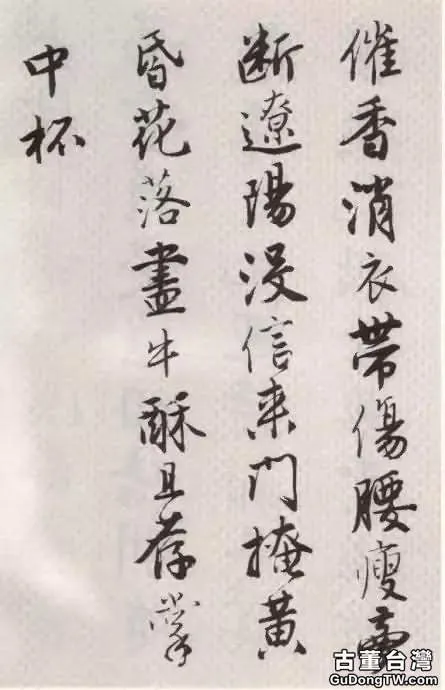 催香消衣帶傷腰瘦夢
断遼陽没信来門掩黄
昏花落盡牛酥且荐掌
中杯
古董台灣
GuDongTW.com